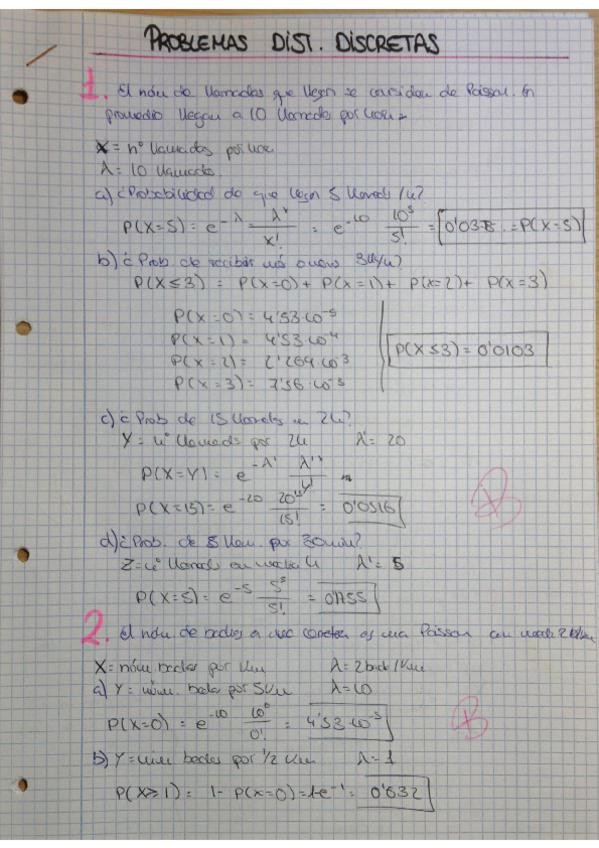 PROBLEMAS DIST. DISCRETAS
1. El núm de llamadas que llegan se consideran de Poisson. En
promedio llegan a 10 llamadas por hora
X = nº llamadas por hora
λ = 10 llamadas
a) ¿Probabilidad de que llegan 5 llamads /h?
P(X=5) = e^-λ λ^x / x! = e^-10 10^5 / 5! = 0'0378 = P(X=5)
b) ¿Prob de recibir 3 /h?
P(X≤3) = P(X=0) + P(X=1) + P(X=2) + P(X=3)
P(X=0) = 4'53·10^-5
P(X=1) = 4'53·10^-4
P(X=2) = 2'269·10^-3
P(X=3) = 7'56·10^-3
P(X≤3) = 0'0103
c) ¿Prob de 15 llamads en 2h?
Y = nº llamads por 2h λ' = 20
P(X=Y) = e^-λ' λ'^y / y!
P(X=15) = e^-20 20^15 / 15! = 0'0516
d) ¿Prob. de 5 llam. por 30min?
Z = nº llamads en media h λ' = 5
P(X=5) = e^-5 5^5 / 5! = 0'1755
2. El núm de baches a de una Poisson con media 2 b/km
X = núm baches por km λ = 2 bach/km
a) Y = núm. bache por 5km λ = 10
P(X=0) = e^-10 10^0 / 0! = 4'53·10^-5
b) Y = núm baches por 1/2 km λ = 1
P(X≥1) = 1 - P(X=0) = 1-e^-1 = 0'632